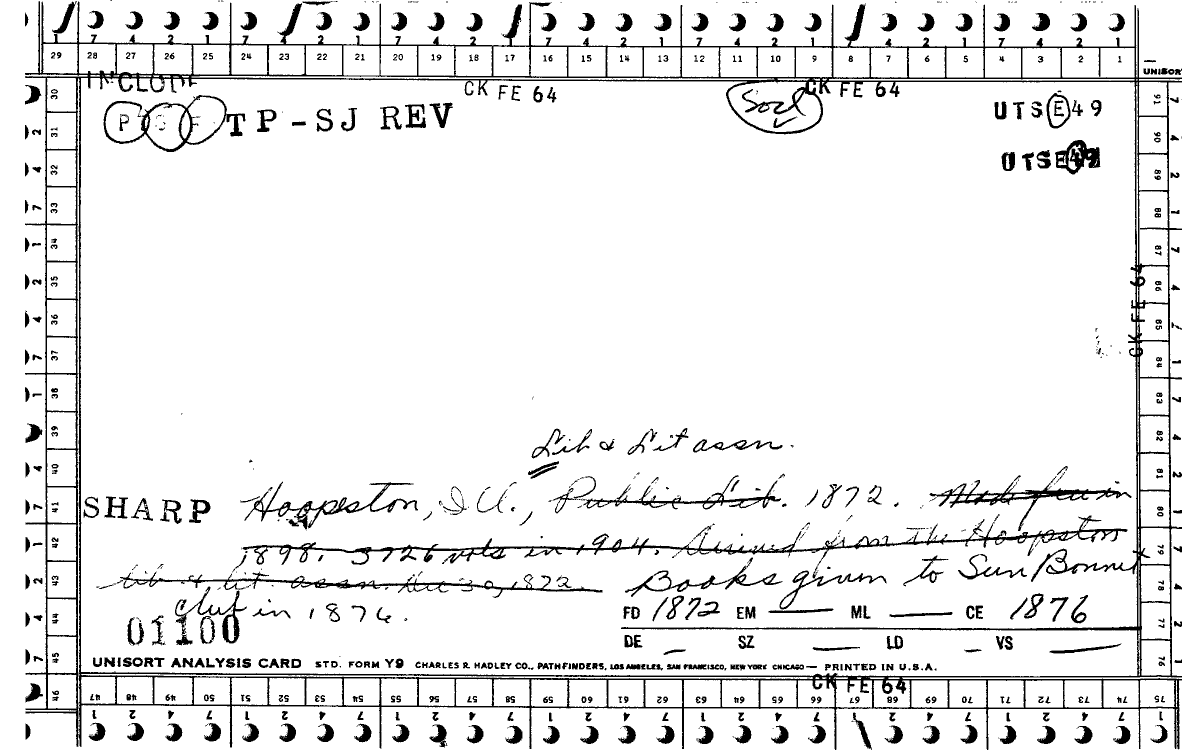 7 4 2 1 7 4 2 1 7 4 2 1 7 4 2 1 7 4 2 1 7 4 2 1 7 4 2 1
29 28 27 26 25 24 23 22 21 20 19 18 17 16 15 14 13 12 11 10 9 8 7 6 5 4 3 2 1
UNISORT
INCLUDE CK FE 64 Socl CK FE 64
P S F TP-SJ REV UTSE49
UTSE49
CK FE 64
Lib & Lit assn.
SHARP Hoopeston, Ill., Public Lib. 1872. Made free in
1898. 3726 vols in 1904. Derived from the Hoopeston
Lib & Lit assn. Dec 30, 1872. Books given to Sun Bonnet
Club in 1876.
FD 1872 EM — ML — CE 1876
01100
DE — SZ LD — VS —
UNISORT ANALYSIS CARD STD. FORM Y9 CHARLES R. HADLEY CO., PATHFINDERS, LOS ANGELES, SAN FRANCISCO, NEW YORK CHICAGO — PRINTED IN U.S.A.
CK FE 64
47 48 49 50 51 52 53 54 55 56 57 58 59 60 61 62 63 64 65 66 67 68 69 70 71 72 73 74 75